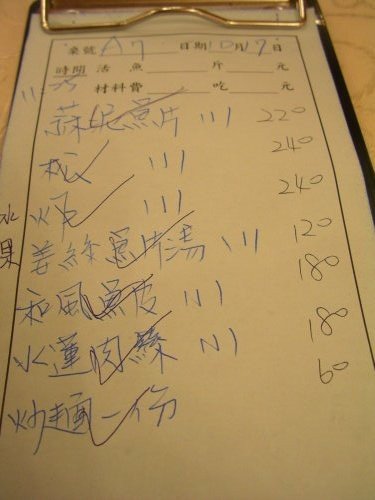 桌號 A7 日期 10月17日
時間 活魚 斤 元
材料費 吃 元
蒜泥魚片 川 220
松 川 240
川 240
水果
姜絲魚片湯 川 120
和風魚皮 川 180
水蓮肉絲 川 180
炒麵一份 60